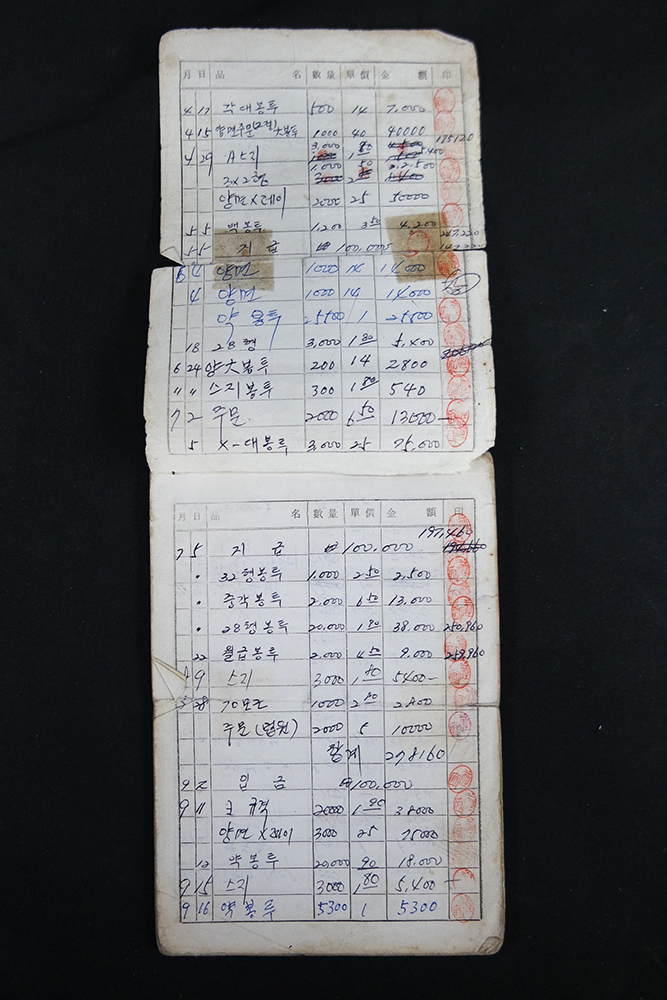 月 日 品 名 數量 單價 金 額 印
4 17 각대봉투 500 14 7,000
4 15 양면주문(2절)大봉투 1000 40 40000
175120
4 29 A스리 3,000 1 80 5,400
3×2형 1,000 2 50 2,500
양면X레이 2000 25 50000
5 5 백봉투 1,200 3 50 4,200
5 5 지급 ₩100,000
6 4 양면 1000 14 14,000
4 양면 1000 14 14,000
약봉투 25800 1 25800
18 28형 3,000 1 80 5,400
6 24 양大봉투 200 14 2800
〃 〃 스지봉투 300 1 80 540
7 2 주문 2000 6 50 13000-
5 X-대봉투 3,000 25 75,000
月 日 品 名 數量 單價 金 額 印
197,460
7 5 지급 ₩100,000
· 32형봉투 1,000 2 50 2,500
· 중각봉투 2,000 6 50 13,000
· 28형봉투 20,000 1 90 38,000 250,960
22 월급봉투 2,000 4 50 9,000 259,960
9 스리 3000 1 80 5400-
28 70모조 1000 2 80 2800
주문(병원) 2000 5 10000
합계 278160
9 2 입금 ₩100,000
9 11 코규격 20000 1 90 38000
양면X레이 3000 25 75000
12 약봉투 20,000 90 18,000
9 15 스리 3000 1 80 5,400-
9 16 약봉투 5300 1 5300